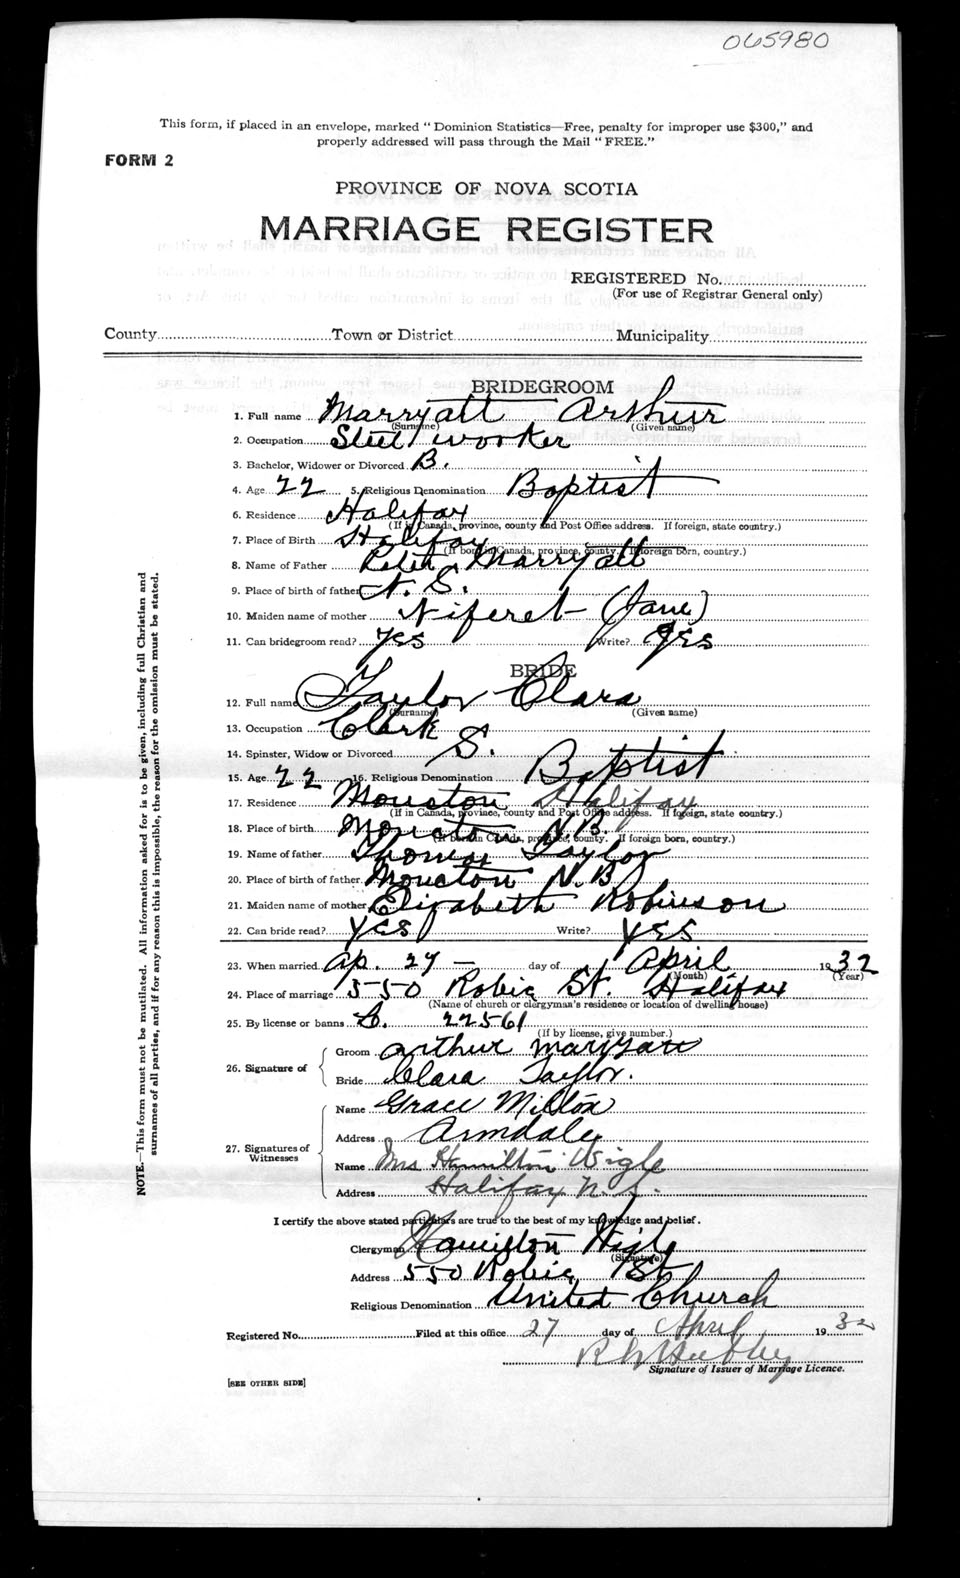 065980
This form, if placed in an envelope, marked "Dominion Statistics—Free, penalty for improper use $300," and
properly addressed will pass through the Mail "FREE."
FORM 2
PROVINCE OF NOVA SCOTIA
MARRIAGE REGISTER
REGISTERED No.
(For use of Registrar General only)
County Town or District Municipality
BRIDEGROOM
1. Full name Marryatt Arthur
(Surname) (Given name)
2. Occupation Steel worker
3. Bachelor, Widower or Divorced B.
4. Age 22 5. Religious Denomination Baptist
6. Residence Halifax
(If in Canada, province, county and Post Office address. If foreign, state country.)
7. Place of Birth Halifax
(If born in Canada, province, county. If foreign born, country.)
8. Name of Father Peter Marryatt
9. Place of birth of father N. S.
10. Maiden name of mother Niferet (Jane)
11. Can bridegroom read? Yes Write? Yes
BRIDE
12. Full name Taylor Clara
(Surname) (Given name)
13. Occupation Clark
14. Spinster, Widow or Divorced S.
15. Age 22 16. Religious Denomination Baptist
17. Residence Moncton Halifax
(If in Canada, province, county and Post Office address. If foreign, state country.)
18. Place of birth Moncton N.B.
(If born in Canada, province, county. If foreign born, country.)
19. Name of father Thomas Taylor
20. Place of birth of father Moncton N.B
21. Maiden name of mother Elizabeth Robinson
22. Can bride read? Yes Write? Yes
23. When married Ap. 27 — day of April 1932
(Month) (Year)
24. Place of marriage 550 Robie St. Halifax
(Name of church or clergyman's residence or location of dwelling house)
25. By license or banns L. 22561
(If by license, give number.)
26. Signature of
Groom Arthur Marryatt
Bride Clara Taylor.
27. Signatures of Witnesses
Name Grace Milton
Address Armdale
Name Mrs Hamilton Wigle
Address Halifax N. S.
I certify the above stated particulars are true to the best of my knowledge and belief.
Clergyman Hamilton Wigle
(Signature)
Address 550 Robie St
Religious Denomination United Church
Registered No. Filed at this office 27 day of April 1932
Signature of Issuer of Marriage Licence.
[SEE OTHER SIDE]
NOTE.—This form must not be mutilated. All information asked for is to be given, including full Christian and
surnames of all parties, and if for any reason this is impossible, the reason for the omission must be stated.